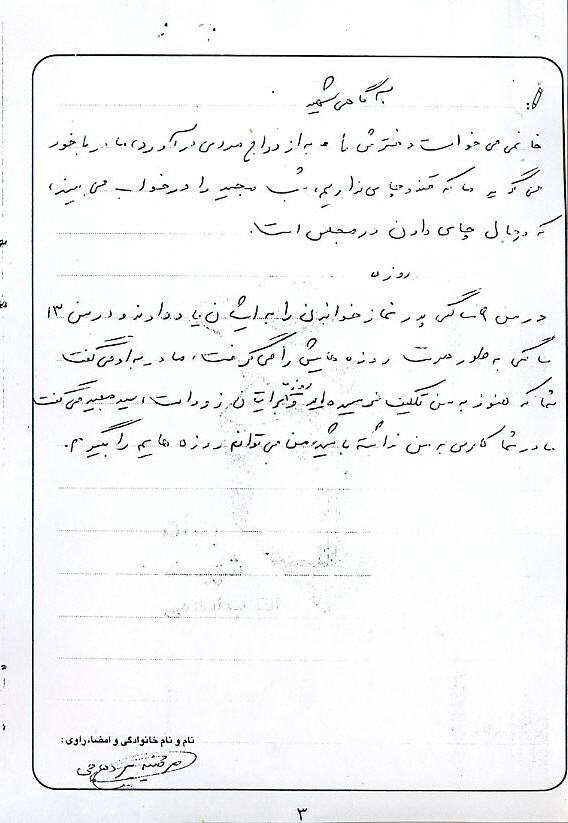 آگاهی شهید
خانمی می خواست دخترش را به ازدواج مردی در آورد، مادر با خود
می گوید ما که قند و چای نداریم، شب مجید را در خواب می بیند،
که دنبال چای دادن در مجلس است.
روزه
در سن ۹ سالگی پدر نماز خواندن را به ایشان یاد دادند و در سن ۱۳
سالگی به طور مرتب روزه هایش را می گرفت، مادر به او می گفت
شما که هنوز به سن تکلیف نرسیده اید و روزه برایتان زود است، سید مجید می گفت
مادر شما کاری به من نداشته باشید من می توانم روزه هایم را بگیرم.
نام و نام خانوادگی و امضاء راوی :
۳